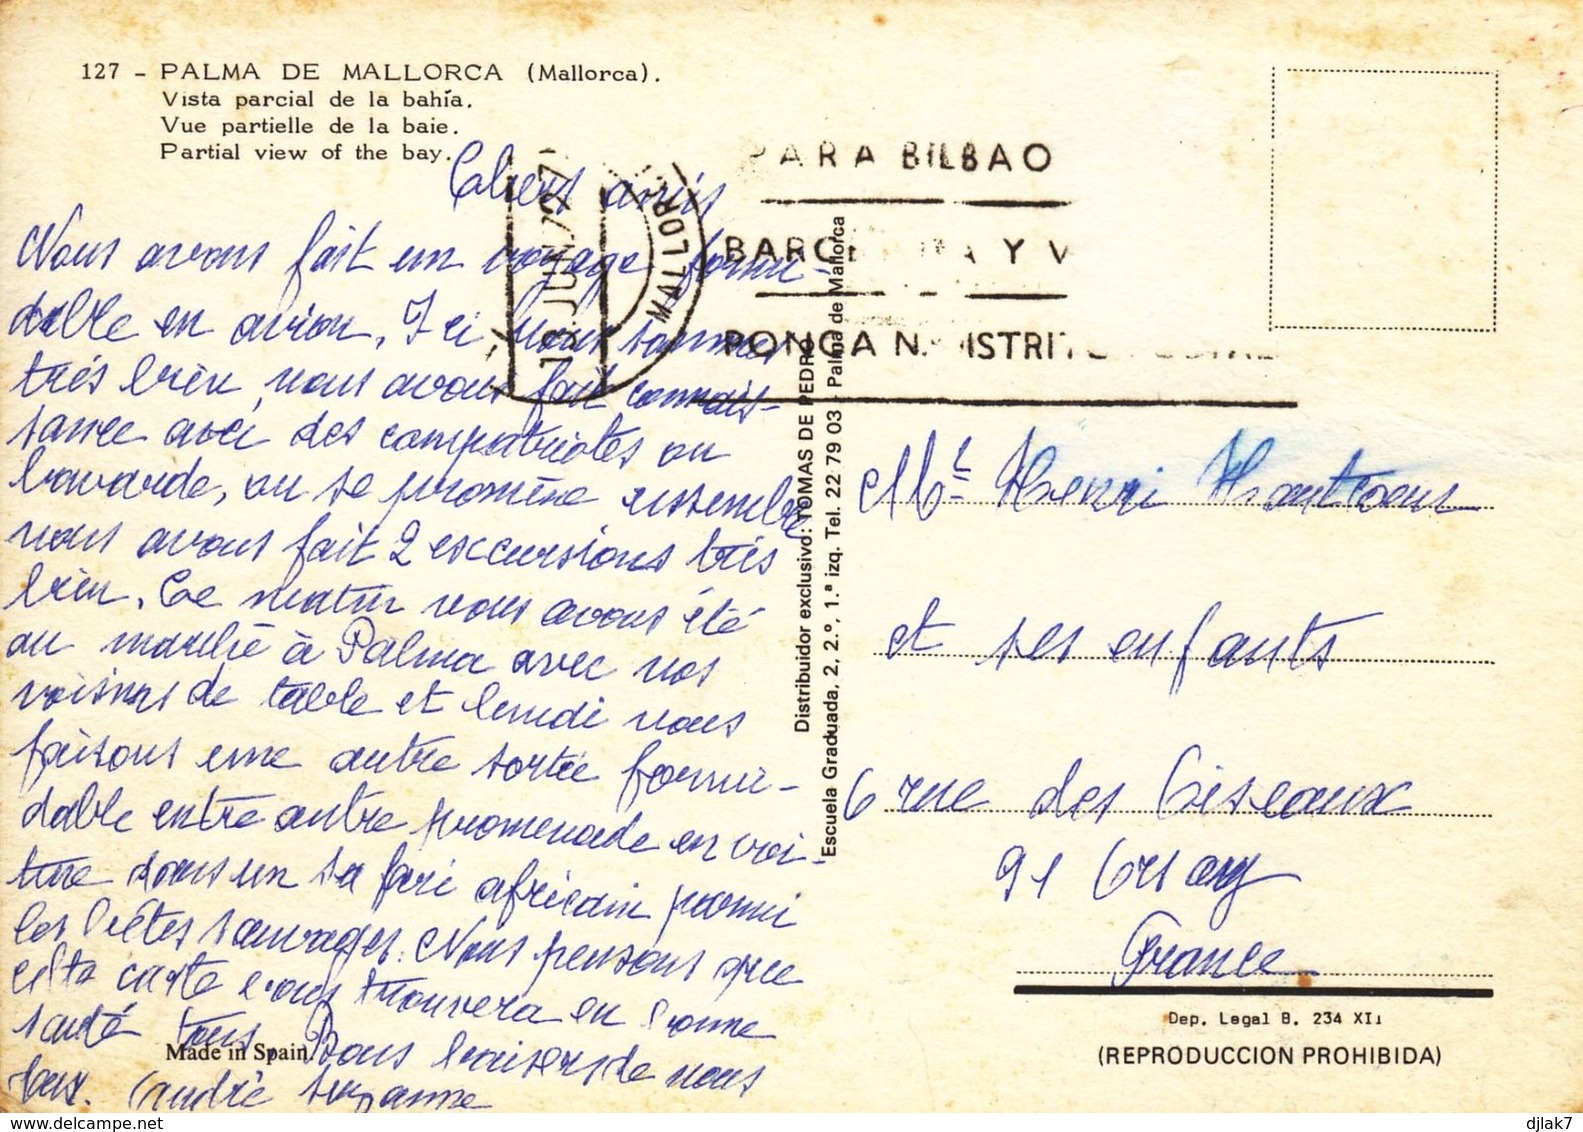 127 - PALMA DE MALLORCA (Mallorca).
Vista parcial de la bahía.
Vue partielle de la baie.
Partial view of the bay.
Chers amis
Nous avons fait un voyage formi-
dable en avion, Ici nous sommes
très bien, nous avons fait connais-
sance avec des compatriotes on
bavarde, on se promène ensemble
nous avons fait 2 excursions très
bien. Ce matin nous avons été
au marché à Palma avec nos
voisins de table et lundi nous
faisons une autre sortie formi-
dable entre autre promenade en voi-
ture dans un safari africain parmi
les bêtes sauvages. Nous pensons que
cette carte vous trouvera en bonne
santé tous. Bons baisers de nous
deux. André Suzanne
Made in Spain
18 JUN 77
MALLOR
PARA BILBAO
BARCE NA Y V
PONGA N. DISTRITO POSTAL
Distribuidor exclusivo: TOMAS DE PEDRO
Escuela Graduada, 2, 2.º, 1.ª izq. Tel. 22 79 03 - Palma de Mallorca
Mr Henri
et ses enfants
6 rue des Oiseaux
91 Orsay
France
Dep. Legal B. 234 XII
(REPRODUCCION PROHIBIDA)
djlak7